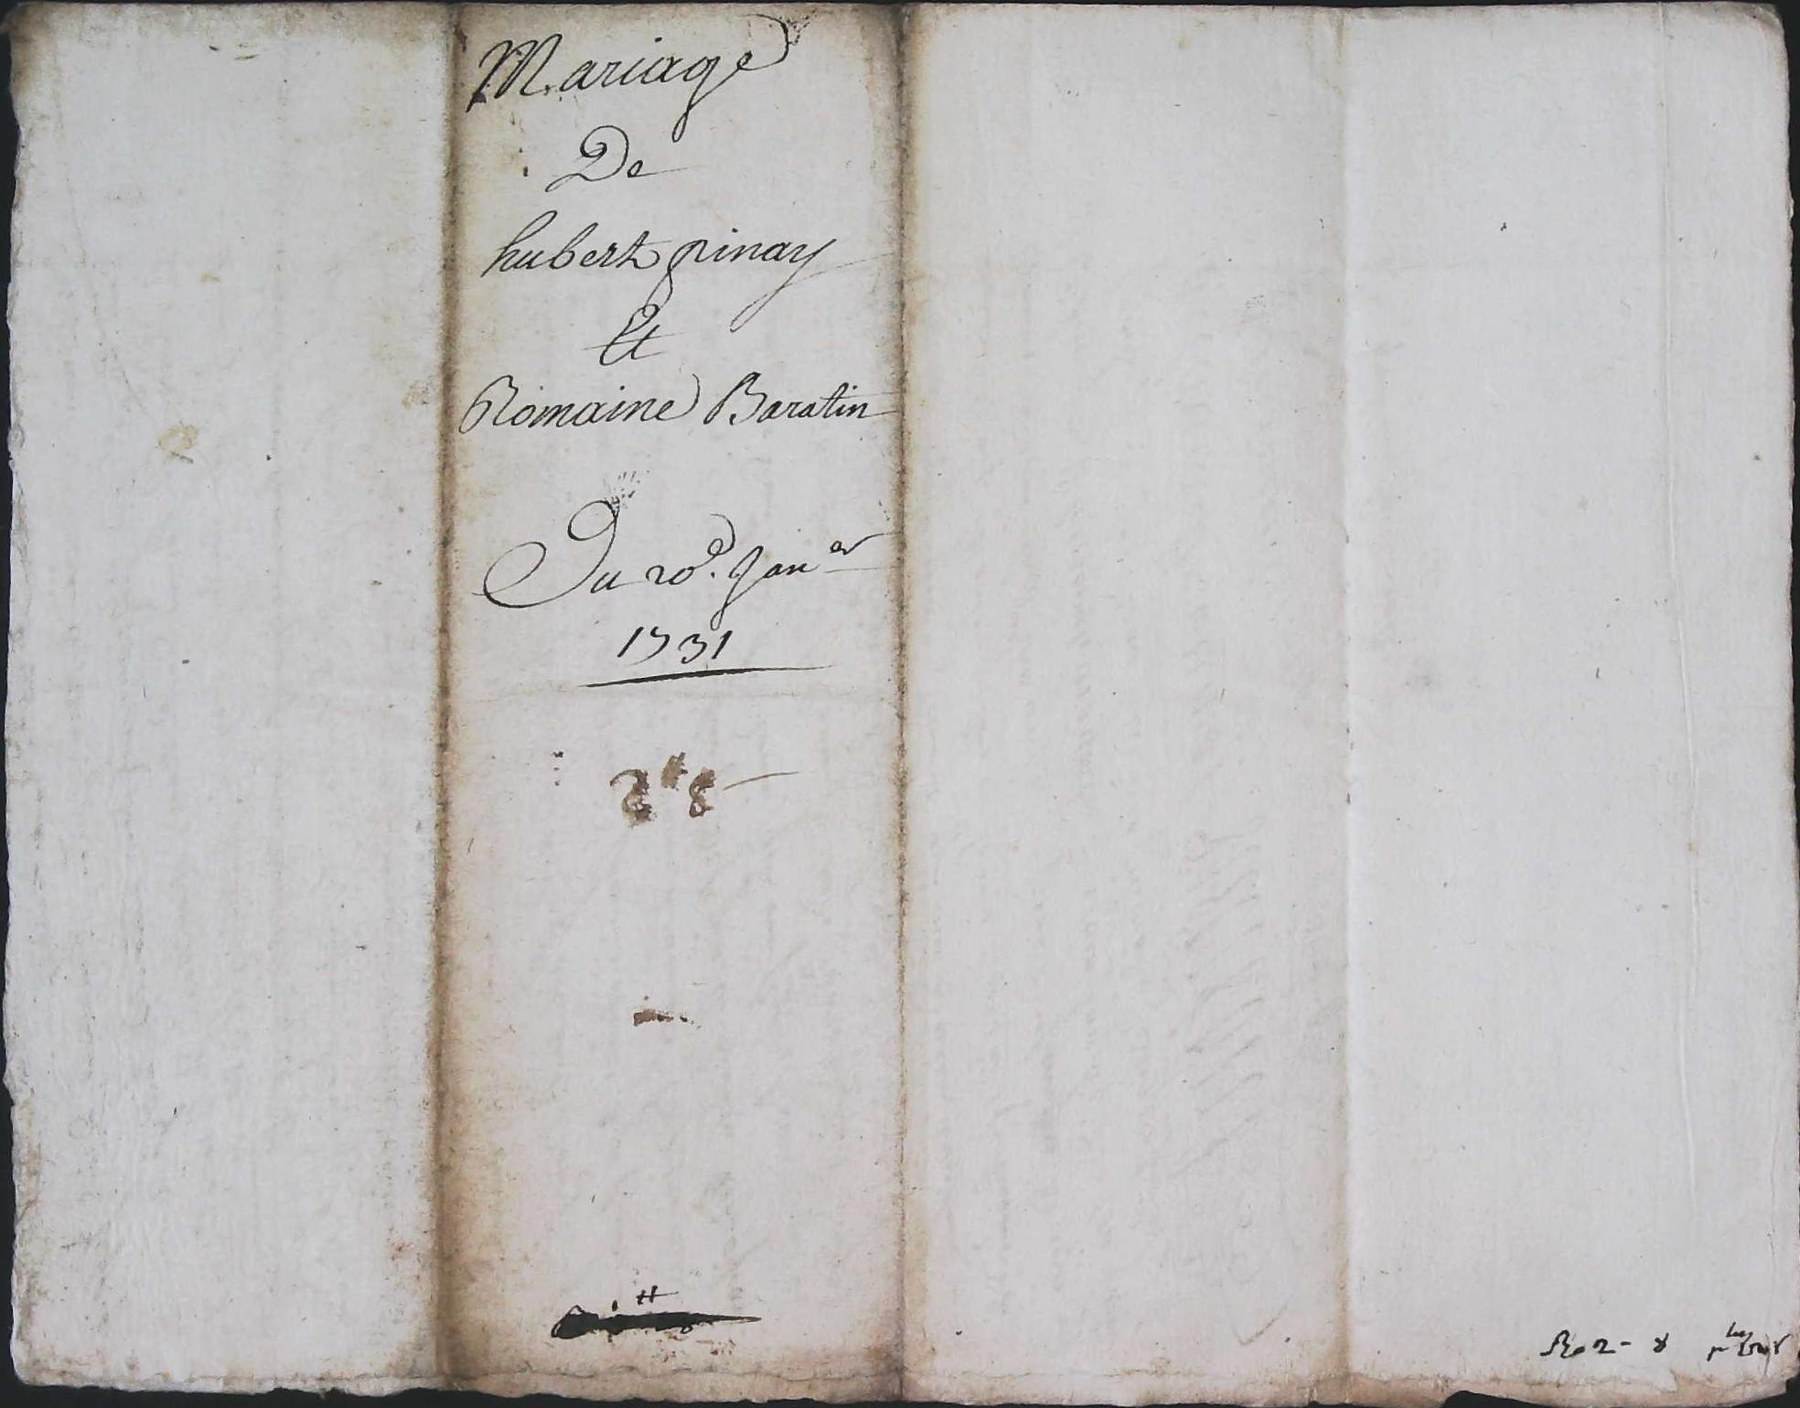 Mariage
De
hubert pinay
Et
Romaine Baratin
Du 20e. Janer
1731